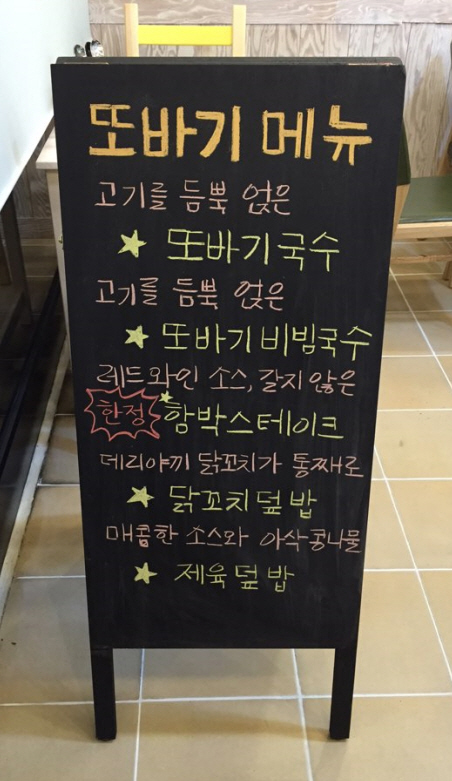 또바기 메뉴
고기를 듬뿍 얹은
★ 또바기국수
고기를 듬뿍 얹은
★ 또바기비빔국수
레드와인 소스, 갈지않은
한정 ★ 함박스테이크
데리야끼 닭꼬치가 통째로
★ 닭꼬치덮밥
매콤한 소스와 아삭콩나물
★ 제육덮밥